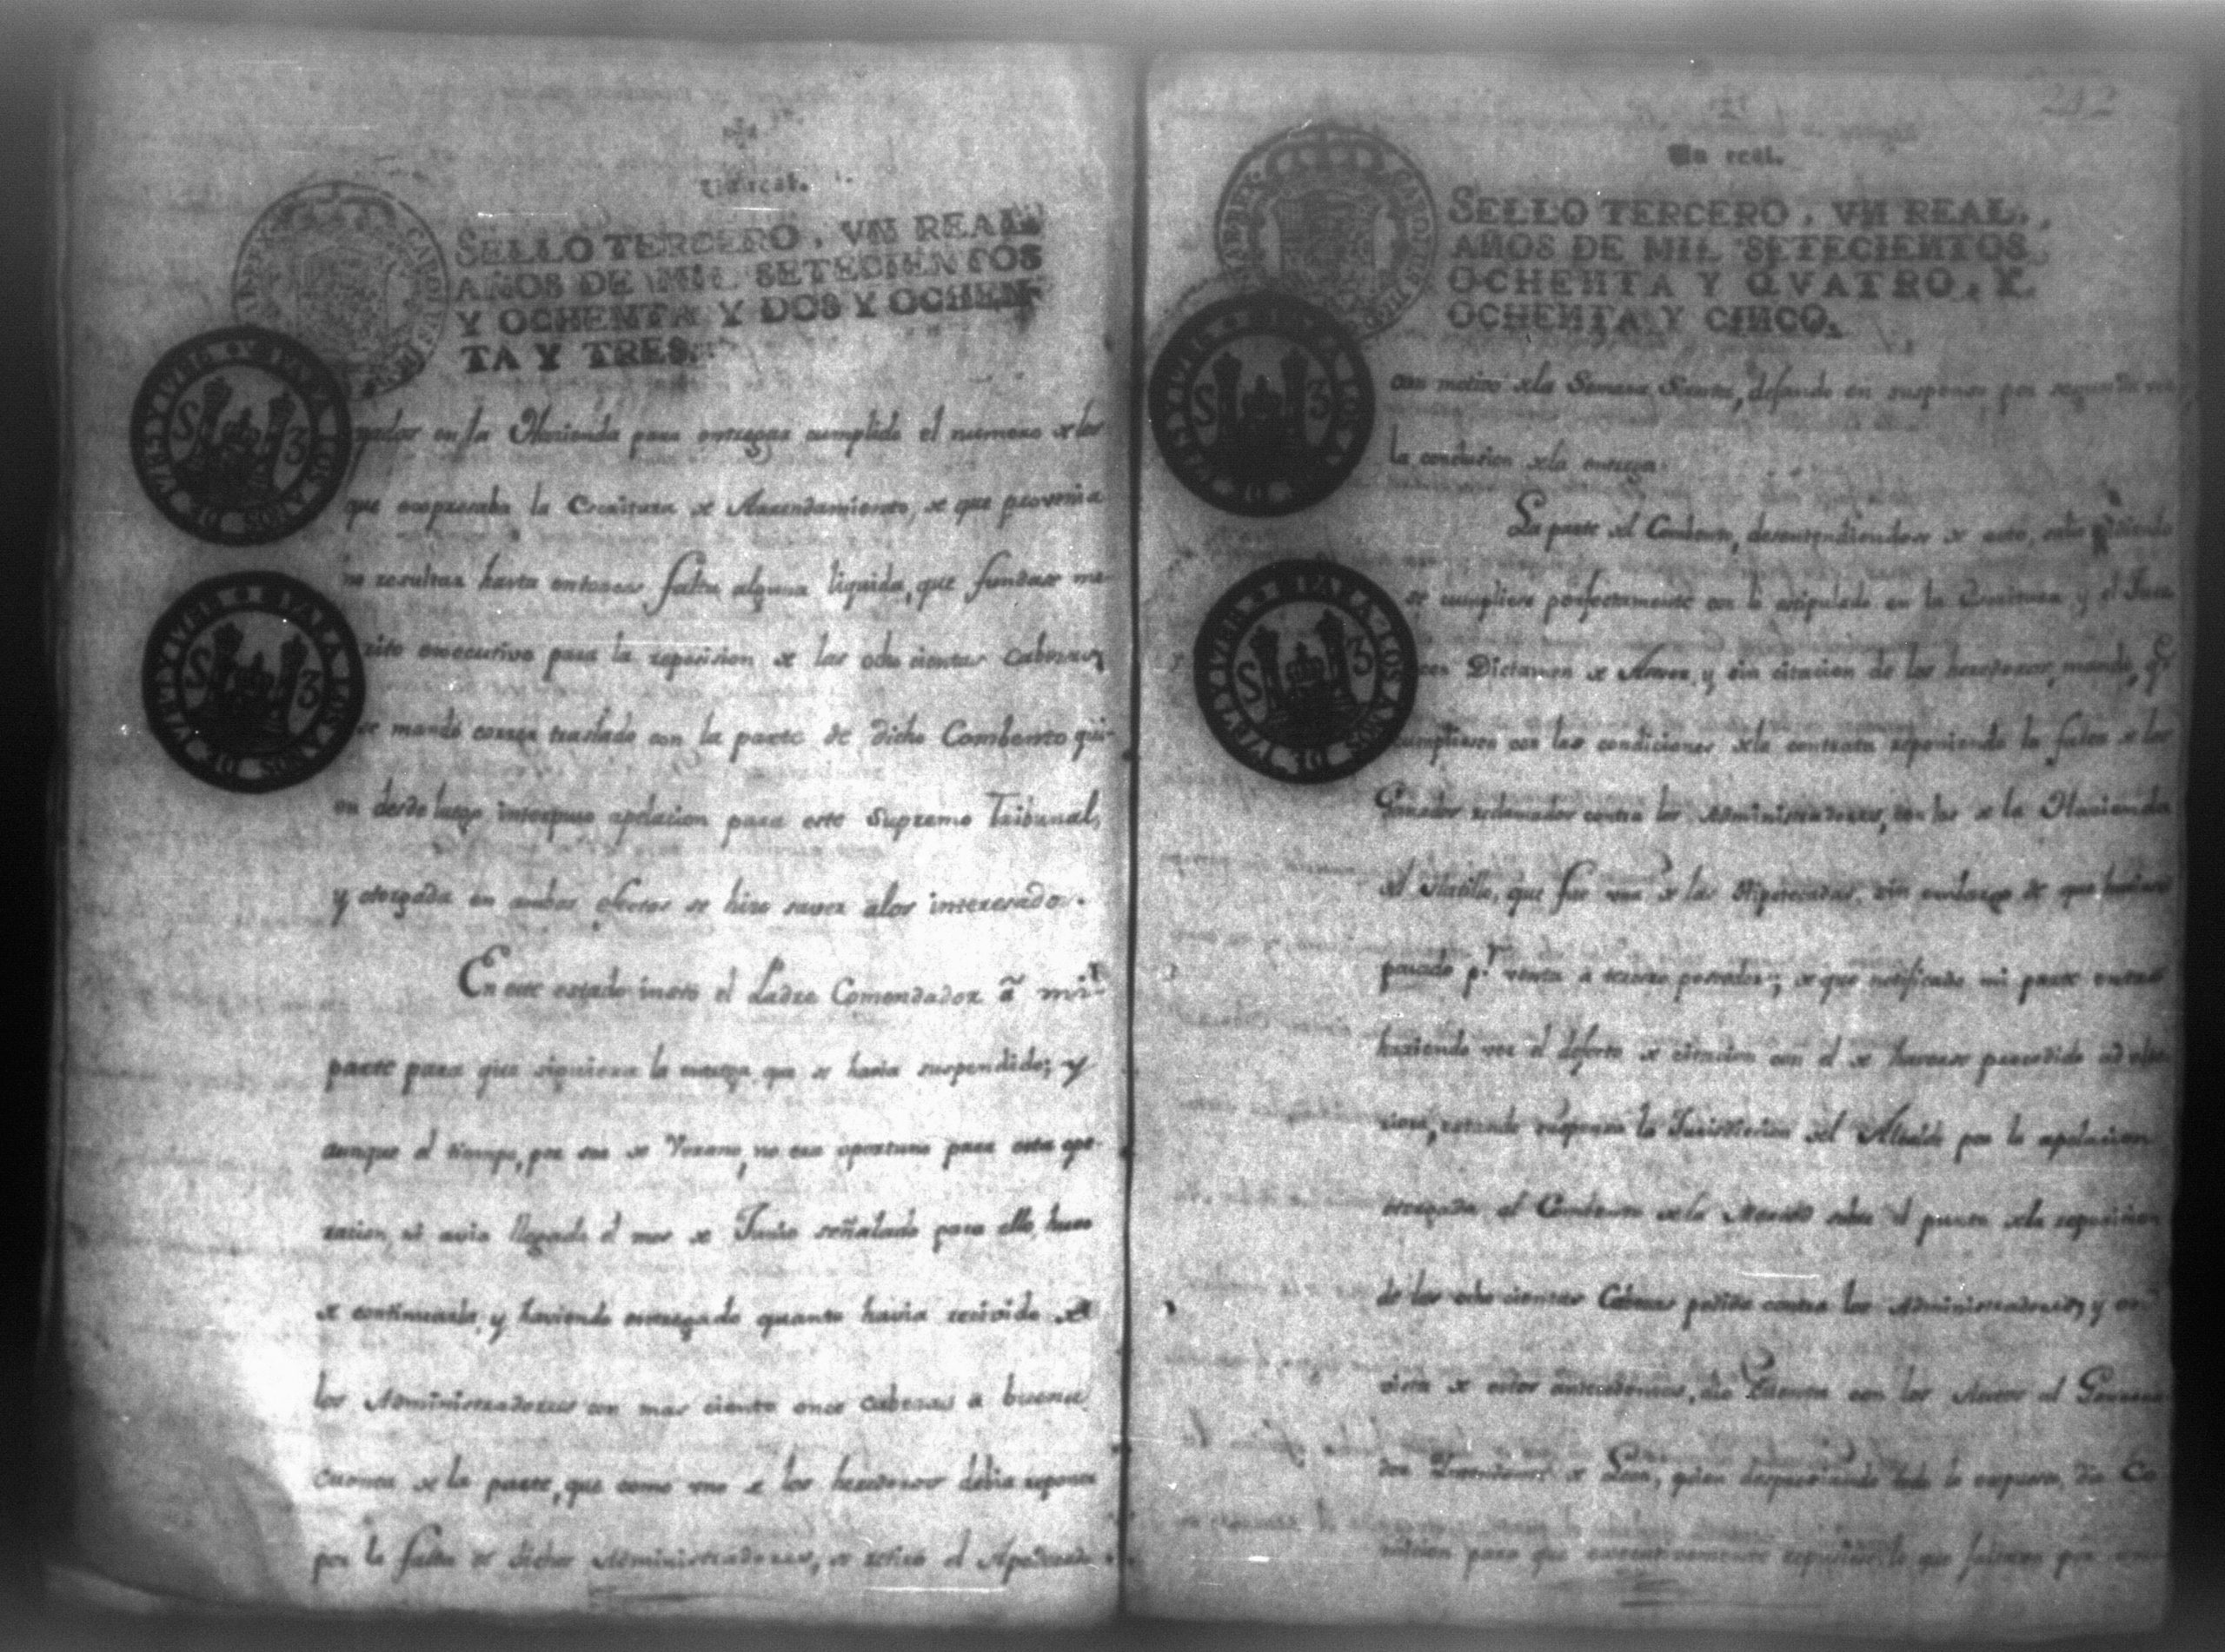 Un real.
SELLO TERCERO, VN REAL,
AÑOS DE MIL SETECIENTOS
Y OCHENTA Y DOS Y OCHEN-
TA Y TRES.
S 3
PARA LOS AÑOS DE
S 3
PARA LOS AÑOS DE
en la Hacienda para entregar cumplido el numero de los
que expresaba la Escritura de Arrendamiento, de que provenia
no resultar hasta entonces falta alguna liquida, que fundase me-
rito executivo para la reposicion de las ocho cientas cabezas,
se mandó correr traslado con la parte de dicho Combento qui-
en desde luego interpuso apelacion para este Supremo Tribunal,
y otorgada en ambos efectos se hizo saver alos interesados.
En este estado instó el Padre Comendador â mi
parte para que siguiera la entrega que se havia suspendido; y
aunque el tiempo, por ser de Verano, no era oportuno para esta ope-
racion, ni avia llegado el mes de Junio señalado para ello, huvo
de continuarla, y haviendo entregado quanto havia recivido de
los Administradores con mas ciento once cabezas a buena
cuenta de la parte, que como uno de los herederos debia reponer
por la falta de dichos Administradores, se retiró el Apoderado
242
Un real.
SELLO TERCERO, VN REAL,
AÑOS DE MIL SETECIENTOS
OCHENTA Y QVATRO, Y
OCHENTA Y CINCO.
S 3
PARA LOS AÑOS DE
S 3
PARA LOS AÑOS DE
con motivo dela Semana Santa, dejando en suspenso por segunda vez
la conclusion dela entrega.
La parte del Combento, desentendiendose de esto,
se cumpliese perfectamente con lo estipulado en la Escritura, y el Juez
con Dictamen de Asesor, y sin citacion de los herederos, mandó, qe
cumpliesen con las condiciones dela contrata reponiendo la falta de los
Ganados reclamados contra los Administradores, con los de la Hacienda
del Platillo, que fue una de las Hipotecadas, sin embargo de que huviese
pasado pr venta a tercero poseedor; de que notificado mi parte
haziendo ver el defecto de citacion con el de haverse procedido
estando suspensa la Jurisdiccion del Alcalde por la apelacion
otorgada al Combento dela Merced sobre el punto dela reposicion
de las ocho cientas Cabezas pedida contra los Administradores, y en
vista de estos antecedentes, dio Cuenta con los Autos al
Intendente de Lima, quien despreciando todo lo expuesto, dio Co-
micion para que executivamente